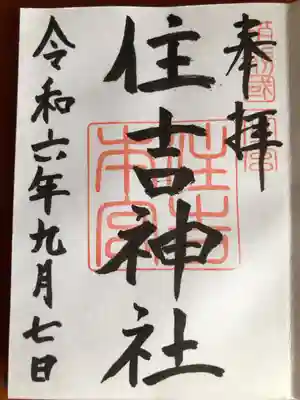 奉拝
住吉神社
令和六年九月七日